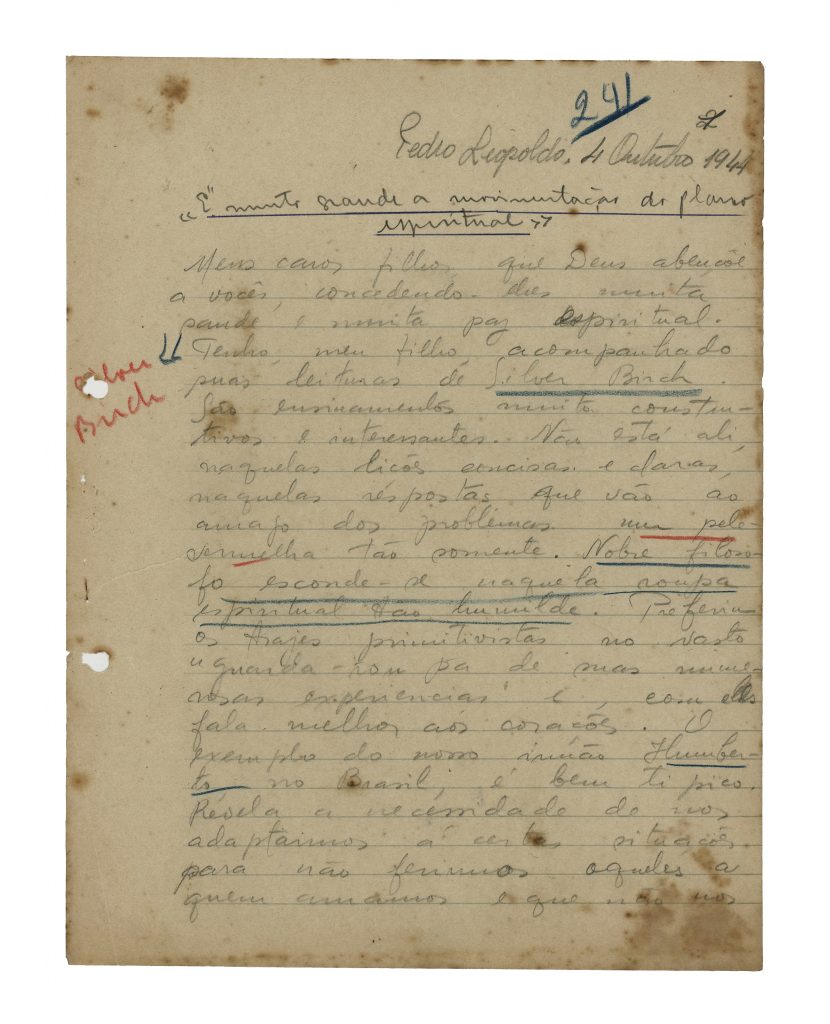 241
Pedro Leopoldo, 4 Outubro 1944
"É muito grande a movimentação do plano
espiritual"
Meus caros filhos, que Deus abençõe
a vocês, concedendo-lhes muita
saude e muita paz espiritual.
Tenho, meu filho, acompanhado
suas leituras de Silver Birch.
Silver
Birch
São ensinamentos muito constru-
tivos e interessantes. Não está ali,
naquelas lições concisas e claras,
naquelas respostas que vão ao
amago dos problemas um pele-
vermelha tão somente. Nobre filoso-
fo esconde-se naquela roupa
espiritual tão humilde. Preferiu
os trajes primitivistas no vasto
guarda-roupa de suas nume-
rosas experiencias e, com eles
fala melhor aos corações. O
exemplo do nosso irmão Humber-
to, no Brasil, é bem tipico.
Revela a necessidade de nos
adaptarmos á certas situações
para não ferirmos aqueles a
quem amamos e que não nos